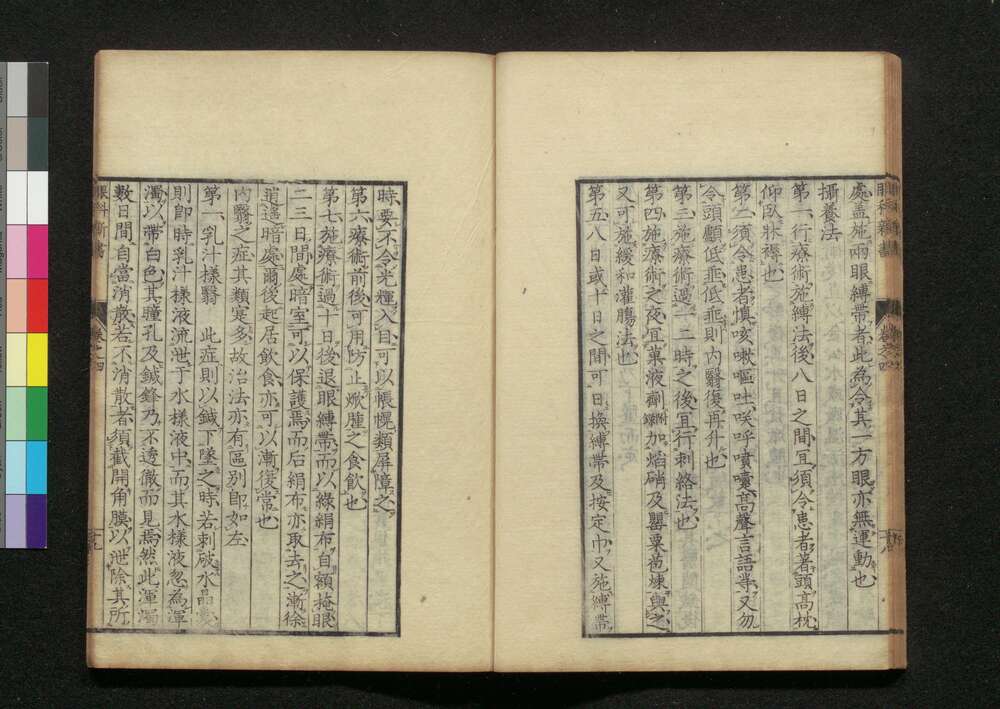 處盖施兩眼縛帶者此為令其一方眼亦無運動也
攝養法
第一行療術施縛法後八日之間宜須令患者著頭高枕
仰臥牀褥也
第二須令患者慎咳嗽嘔吐咲呼噴嚏高聲言語等又勿
令頭顱低垂低垂則内翳復再升也
第三施療術過一二時之後宜行刺絡法也
第四施療術之夜宜菓液劑加焰硝及罌粟茴煉與之
又可施緩和灌腸法也
第五八日或十日之間可日換縛帶及按定巾又施縛帶
時要不令光輝入目可以帳幌類屏障之
第六療術前後可用防止焮腫之食飲也
第七施療術過十日後退眼縛帶而以綠絹布自額掩眼
二三日間處暗室可以保護焉而后絹布亦取去之漸徐
逍遙暗處爾後起居飲食亦可以漸復常也
内翳之症其類寔多故治法亦有區別即如左
第一乳汁樣翳 此症則以鍼下墜之時若刺破水晶囊
則即時乳汁樣液流泄于水樣液中而其水樣液忽為渾
濁以帶白色其瞳孔及鍼鋒乃不透徹而見焉然此渾濁
數日間自當消散若不消散者須截開角膜以泄除其所
眼科新書
卷之四
十九